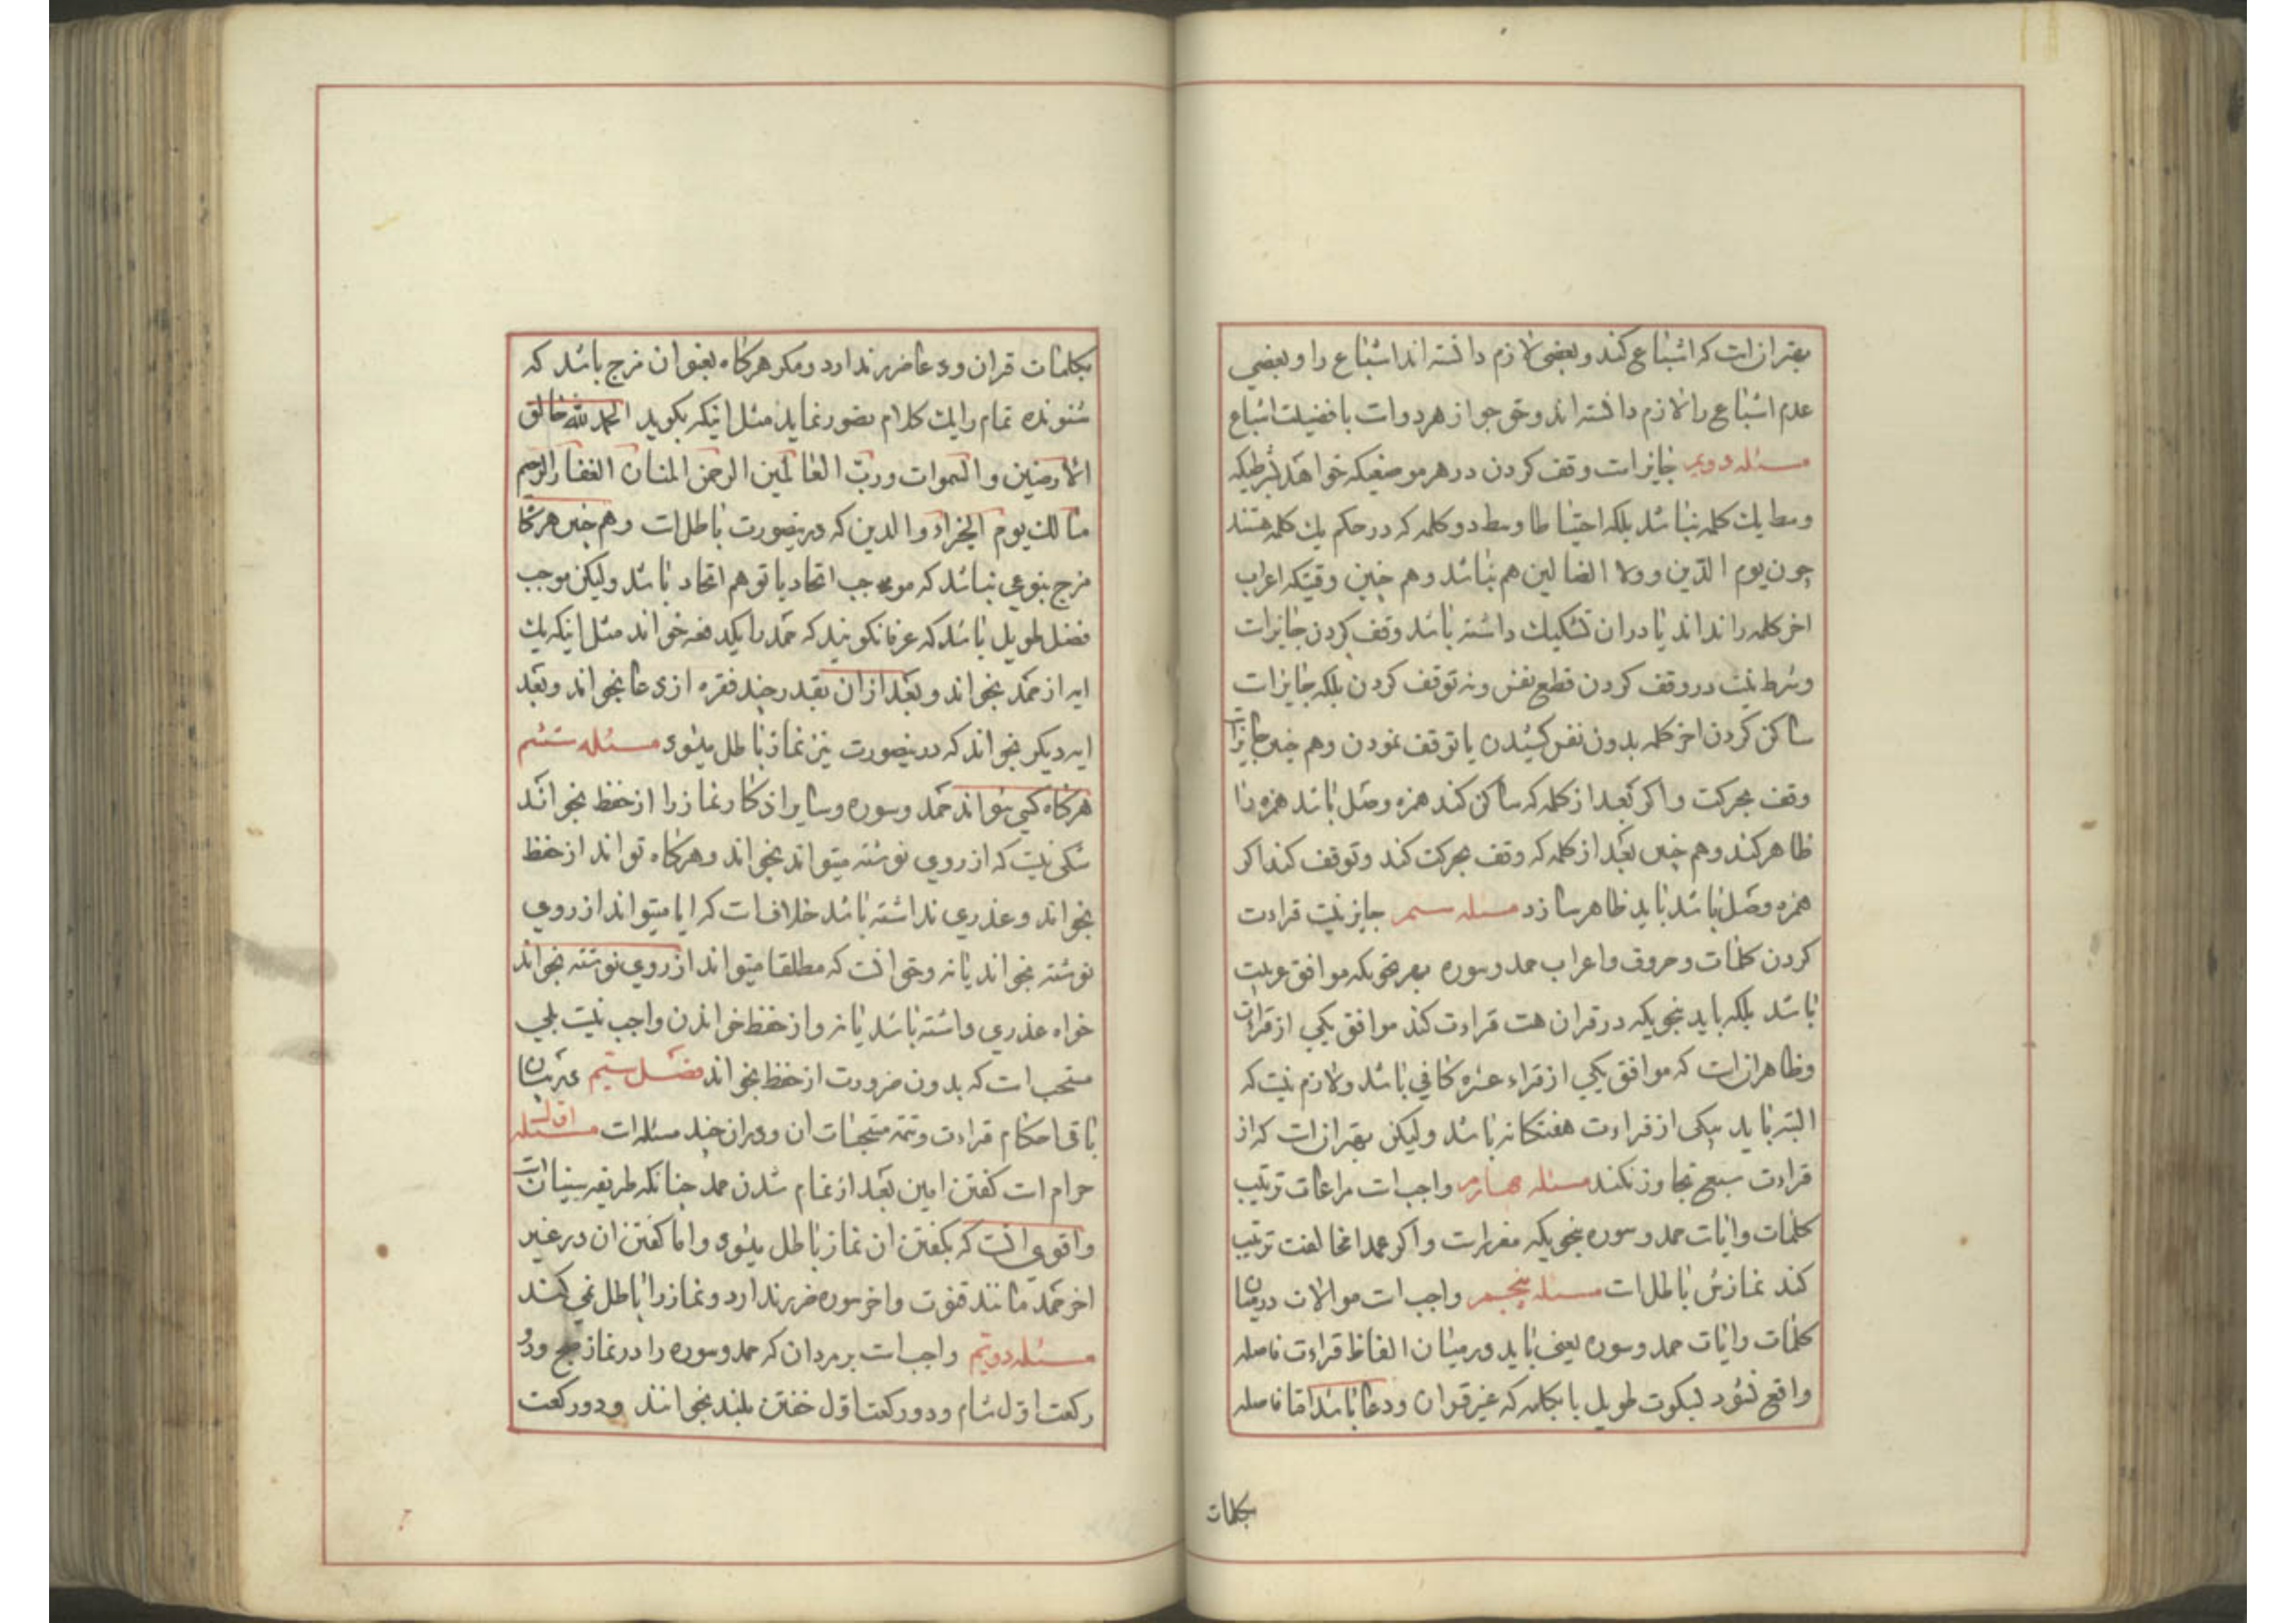 بهتر ان است که اشباع کند و بعضی لازم دانسته اند اشباع را و بعضی
عدم اشباع را لازم دانسته اند و حق جواز هر دو است با فضیلت اشباع
مسئله دویم جایز است وقف کردن در هر موضعیکه خواهد بشرطیکه
وسط یک کلمه نباشد بلکه احتیاطا وسط دو کلمه که در حکم یک کلمه هستند
چون یوم الدین و ولا الضالین هم نباشد و هم چنین وقتیکه اعراب
اخر کلمه را نداند یا در ان تشکیک داشته باشد وقف کردن جایز است
و شرط نیست در وقف کردن قطع نفس و نه توقف کردن بلکه جایز است
ساکن کردن اخر کلمه بدون نفس کشیدن یا توقف نمودن و هم چنین جایز است
وقف بحرکت و اگر بعد از کلمه که ساکن کند همزه وصل باشد همزه را
ظاهر کند و هم چنین بعد از کلمه که وقف بحرکت کند و توقف کند اگر
همزه وصل باشد باید ظاهر سازد مسئله سیم جایز نیست قراءت
کردن کلمات و حروف و اعراب حمد و سوره بهر نحویکه موافق عربیت
باشد بلکه باید بنحویکه در قران هست قراءت کند موافق یکی از قراءات
و ظاهر ان است که موافق یکی از قراء عشره کافی باشد و لازم نیست که
البته باید بیکی از قراءت هفتکانه باشد و لیکن بهتر ان است که از
قراءت سبع تجاوز نکند مسئله چهارم واجب است مراعات ترتیب
کلمات و ایات حمد و سوره بنحویکه مقرر است و اگر عمدا مخالفت ترتیب
کند نمازش باطل است مسئله پنجم واجب است موالات در میان
کلمات و ایات حمد و سوره یعنی باید در میان الفاظ قراءت فاصله
واقع نشود بسکوت طویل یا بکلمه که غیر قران و دعا باشد اما فاصله
بکلمات
بکلمات قران و دعا ضرر ندارد و مکر هرکاه بعنوان مزج باشد که
شنونده تمام را یک کلام تصور نماید مثل اینکه بکوید الحمد لله خالق
الارضین و السموات و رب العالمین الرحمن المنان الغفار الرحیم
مالک یوم الجزاء و الدین که در ینصورت باطل است و هم چنین هرکاه
مزج بنوعی نباشد که موجب اتحاد یا توهم اتحاد باشد و لیکن موجب
فصل طویل باشد که عرفا نکویند که حمد را یکدفعه خواند مثل اینکه یک
ایه از حمد بخواند و بعد از ان بقدر چند فقره از دعا بخواند و بعد
ایه دیکر بخواند که در ینصورت نیز نماز باطل میشود مسئله ششم
هرکاه کسی نتواند حمد و سوره و سایر اذکار نماز را از حفظ بخواند
شکی نیست که از روی نوشته میتواند بخواند و هرکاه تواند از حفظ
بخواند و عذری نداشته باشد خلاف است که ایا میتواند از روی
نوشته بخواند یا نه و حق انست که مطلقا میتواند از روی نوشته بخواند
خواه عذری داشته باشد یا نه و از حفظ خواندن واجب نیست بلی
مستحب است که بدون ضرورت از حفظ بخواند فصل سیم در بیان
باقی احکام قراءت و تتمه مستحبات ان و در ان چند مسئله است مسئله اول
حرام است کفتن امین بعد از تمام شدن حمد چنانکه طریقه سنیان است
و اقوی انست که بکفتن ان نماز باطل میشود و اما کفتن ان در غیر
اخر حمد مانند قنوت و اخر سوره ضرر ندارد و نماز را باطل نمی کند
مسئله دویم واجب است بر مردان که حمد و سوره را در نماز صبح و دو
رکعت اول شام و دو رکعت اول خفتن بلند بخوانند و دو رکعت